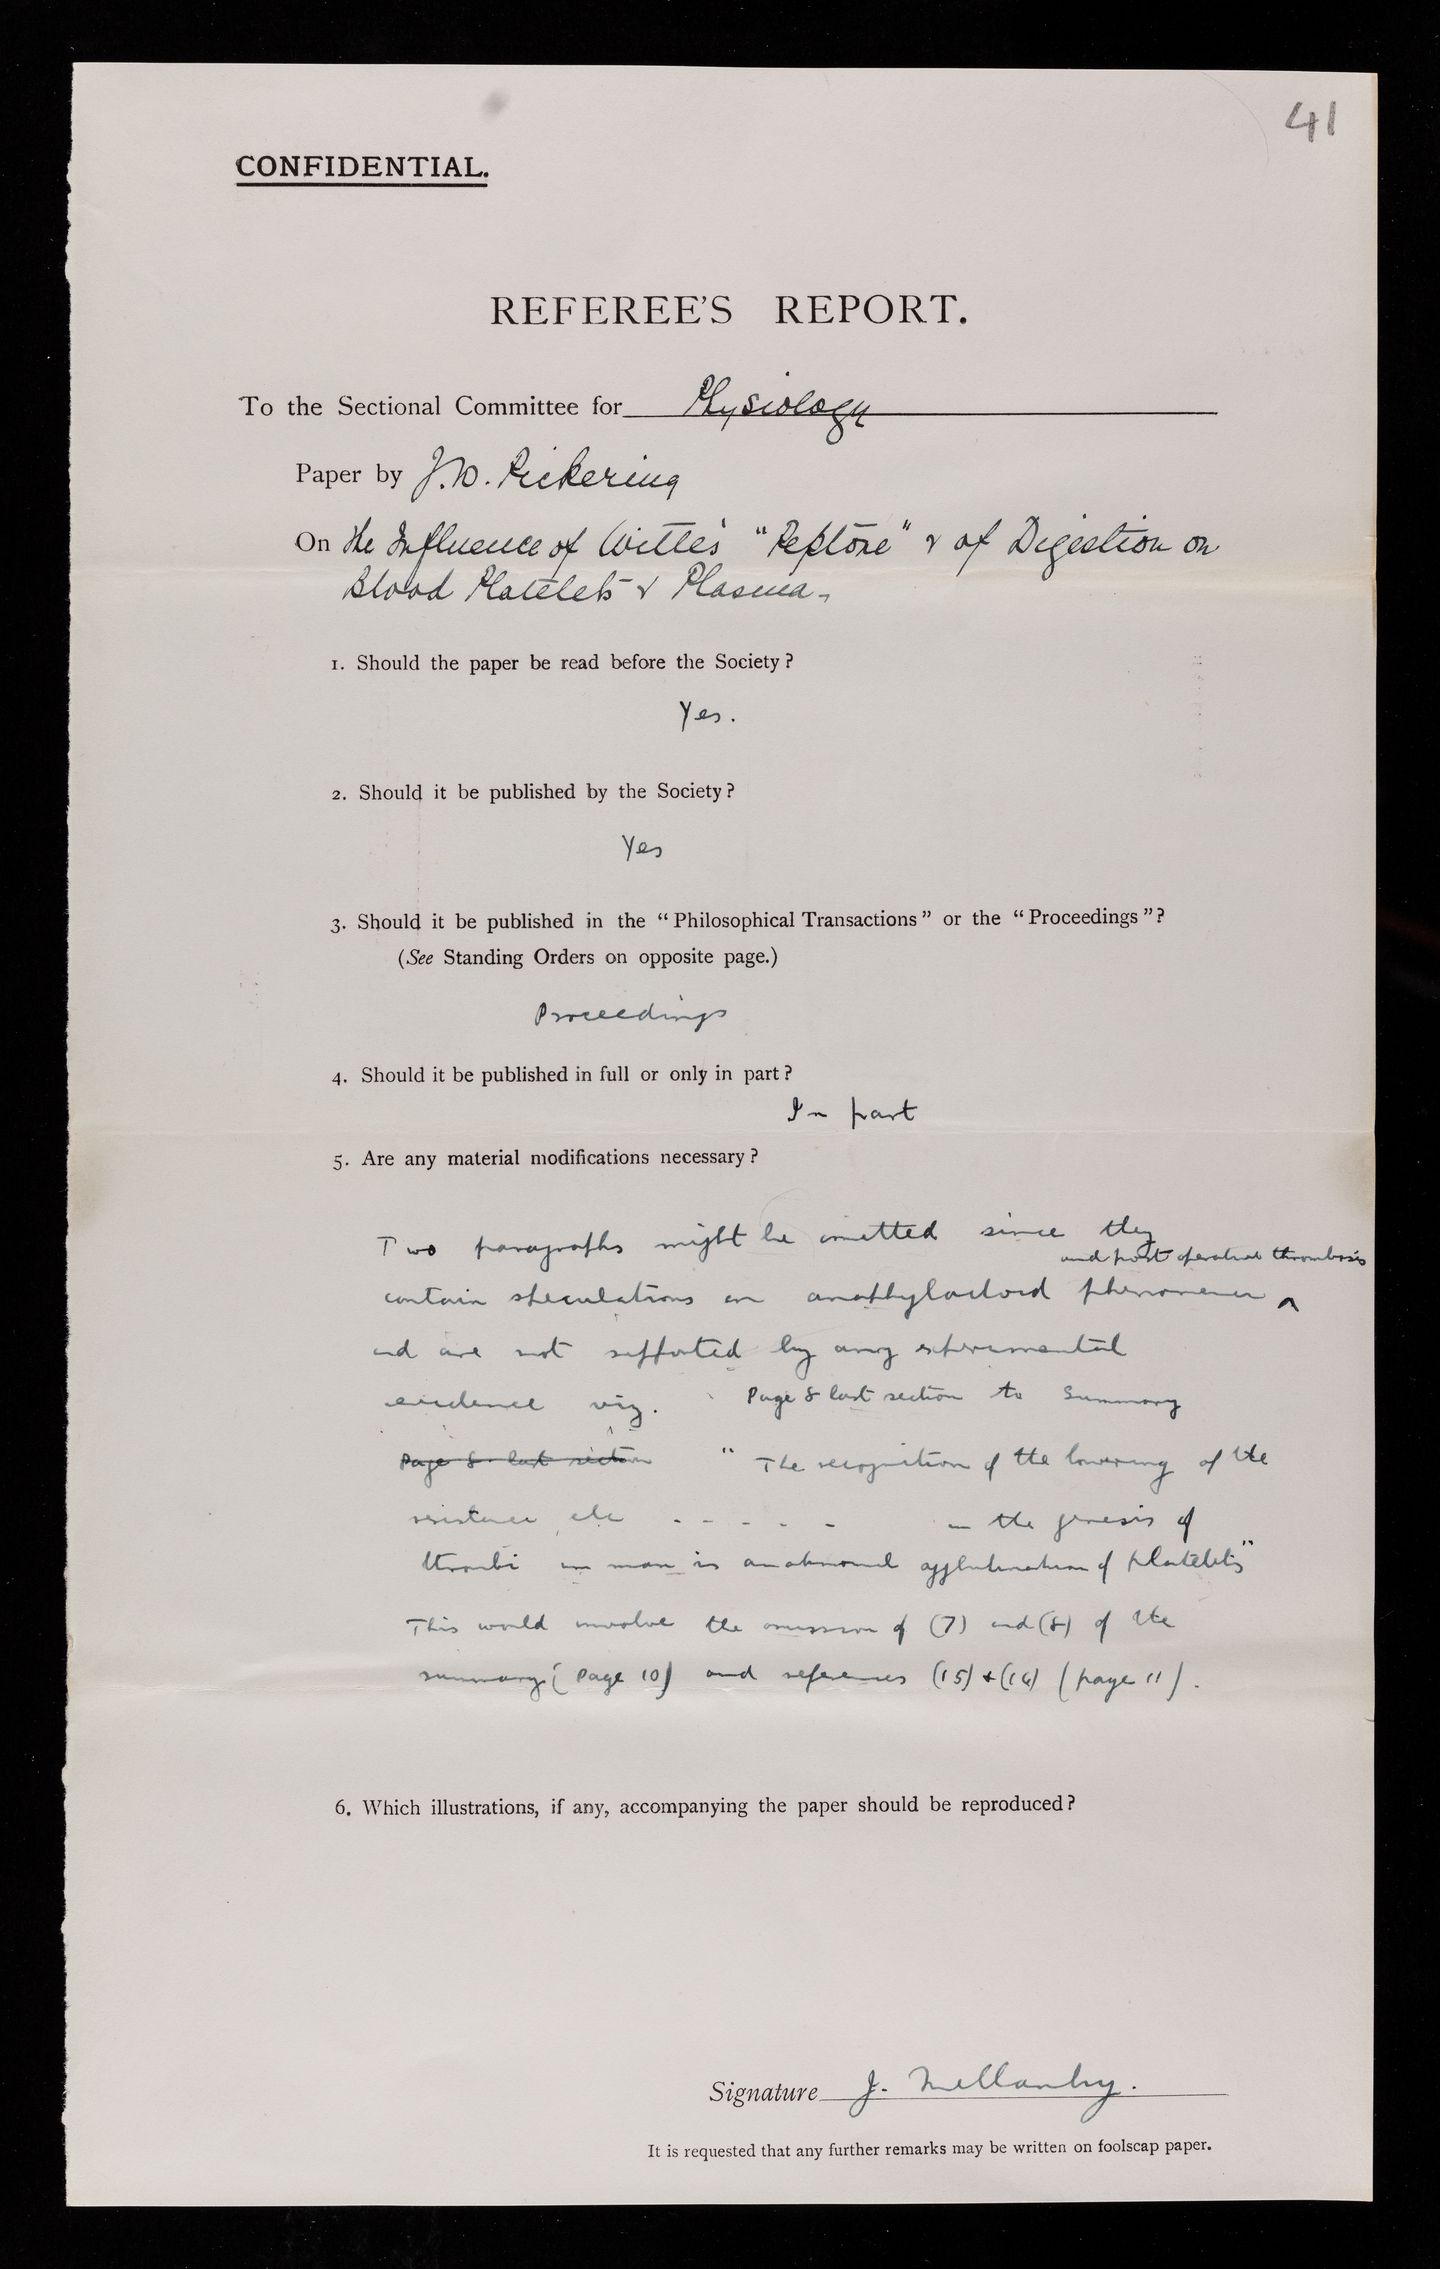 41
CONFIDENTIAL.
REFEREE'S REPORT.
To the Sectional Committee for Physiology
Paper by J. W. Pickering
On the Influence of Witte's "Peptone" & of Digestion on
Blood Platelets & Plasma.
1. Should the paper be read before the Society?
Yes.
2. Should it be published by the Society?
Yes
3. Should it be published in the "Philosophical Transactions" or the "Proceedings"?
(See Standing Orders on opposite page.)
Proceedings
4. Should it be published in full or only in part?
In part
5. Are any material modifications necessary?
Two paragraphs might be omitted since they
and post operative thrombosis
contain speculations on anaphylactoid phenomena ^
and are not supported by any experimental
evidence viz. Page 8 last section to Summary
Page 8 last section " The recognition of the lowering of the
resistance etc - - - - - in the genesis of
thrombi in man is an abnormal agglutination of platelets"
This would involve the omission of (7) and (8) of the
summary (page 10) and references (15) & (16) (page 11).
6. Which illustrations, if any, accompanying the paper should be reproduced?
Signature J. Mellanby.
It is requested that any further remarks may be written on foolscap paper.